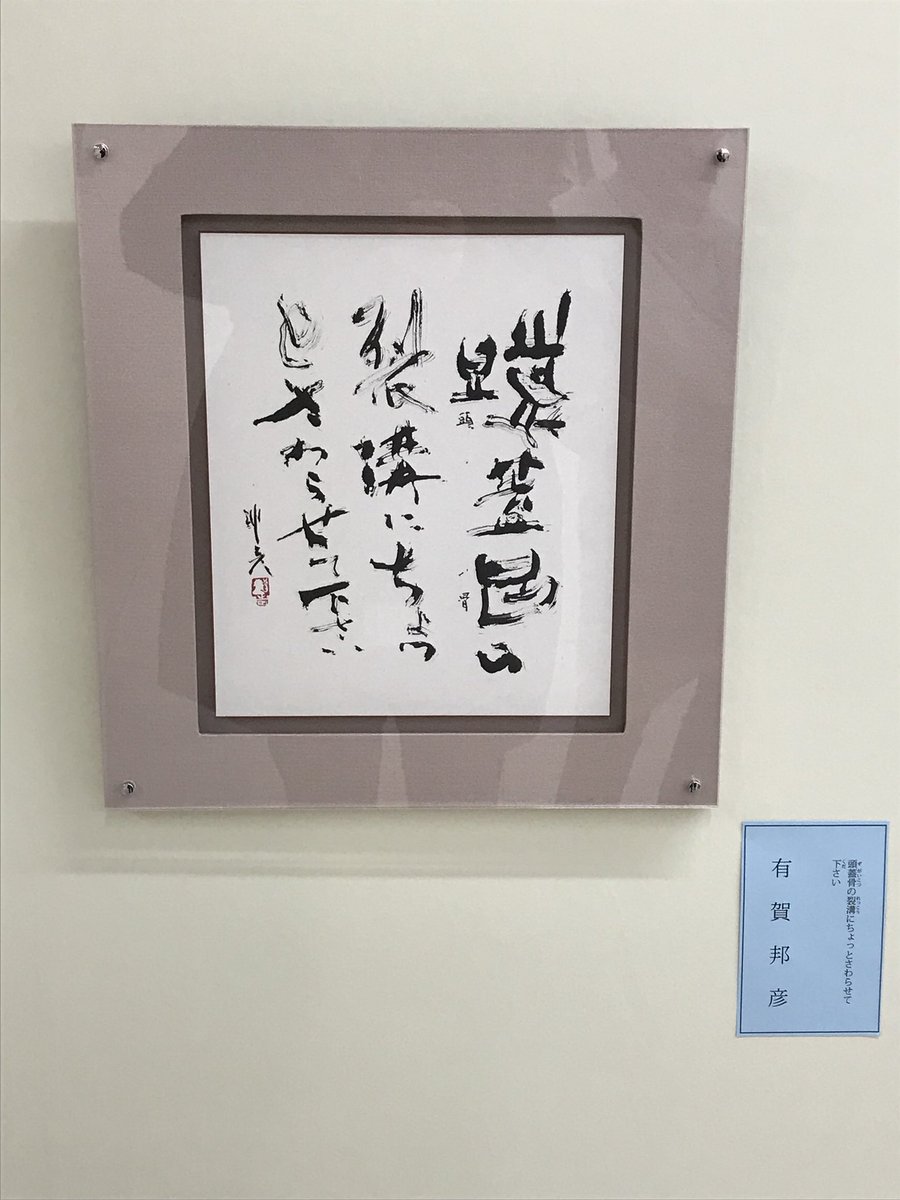 蓋
の
頭
骨
裂溝にちょっ
とさわらせて下さい
邦彦
頭蓋骨の裂溝にちょっとさわらせて
れっこう
下さい
くだ
有賀邦彦